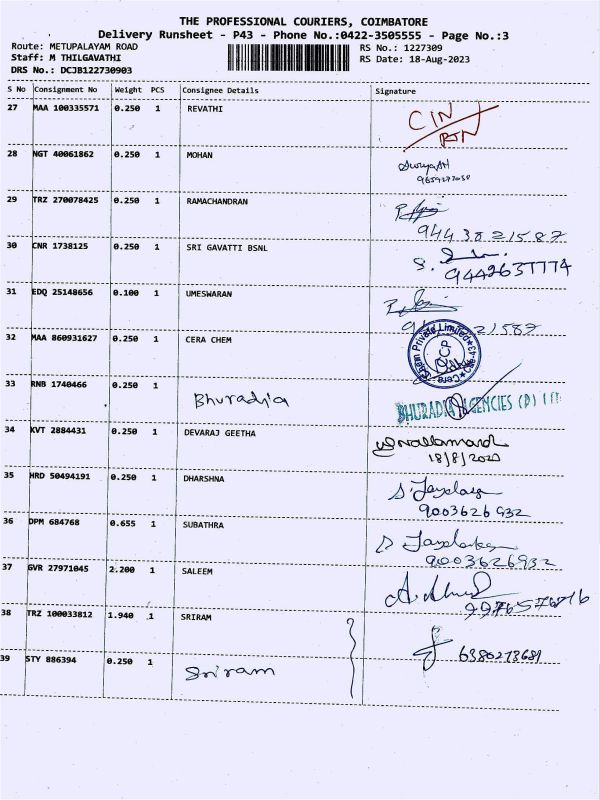 THE PROFESSIONAL COURIERS, COIMBATORE
Delivery Runsheet - P43 - Phone No.:0422-3505555 - Page No.:3
Route: METUPALAYAM ROAD RS No.: 1227309
Staff: M THILGAVATHI RS Date: 18-Aug-2023
DRS No.: DCJB122730903
S No Consignment No Weight PCS Consignee Details Signature
27 MAA 100335571 0.250 1 REVATHI CIN
RTN
28 NGT 40061862 0.250 1 MOHAN
29 TRZ 270078425 0.250 1 RAMACHANDRAN
9443821587
30 CNR 1738125 0.250 1 SRI GAVATTI BSNL
9442637774
31 EDQ 25148656 0.100 1 UMESWARAN
21587
32 MAA 860931627 0.250 1 CERA CHEM Cera Chem Private Limited
33 RNB 1740466 0.250 1 Bhuradia BHURADIA AGENCIES (P) LTD
34 KVT 2884431 0.250 1 DEVARAJ GEETHA
18/8/2023
35 HRD 50494191 0.250 1 DHARSHNA
9003626932
36 DPM 684768 0.655 1 SUBATHRA
9003626932
37 GVR 27971045 2.200 1 SALEEM
9976576716
38 TRZ 100033812 1.940 1 SRIRAM
6380273681
39 STY 886394 0.250 1 Sriram